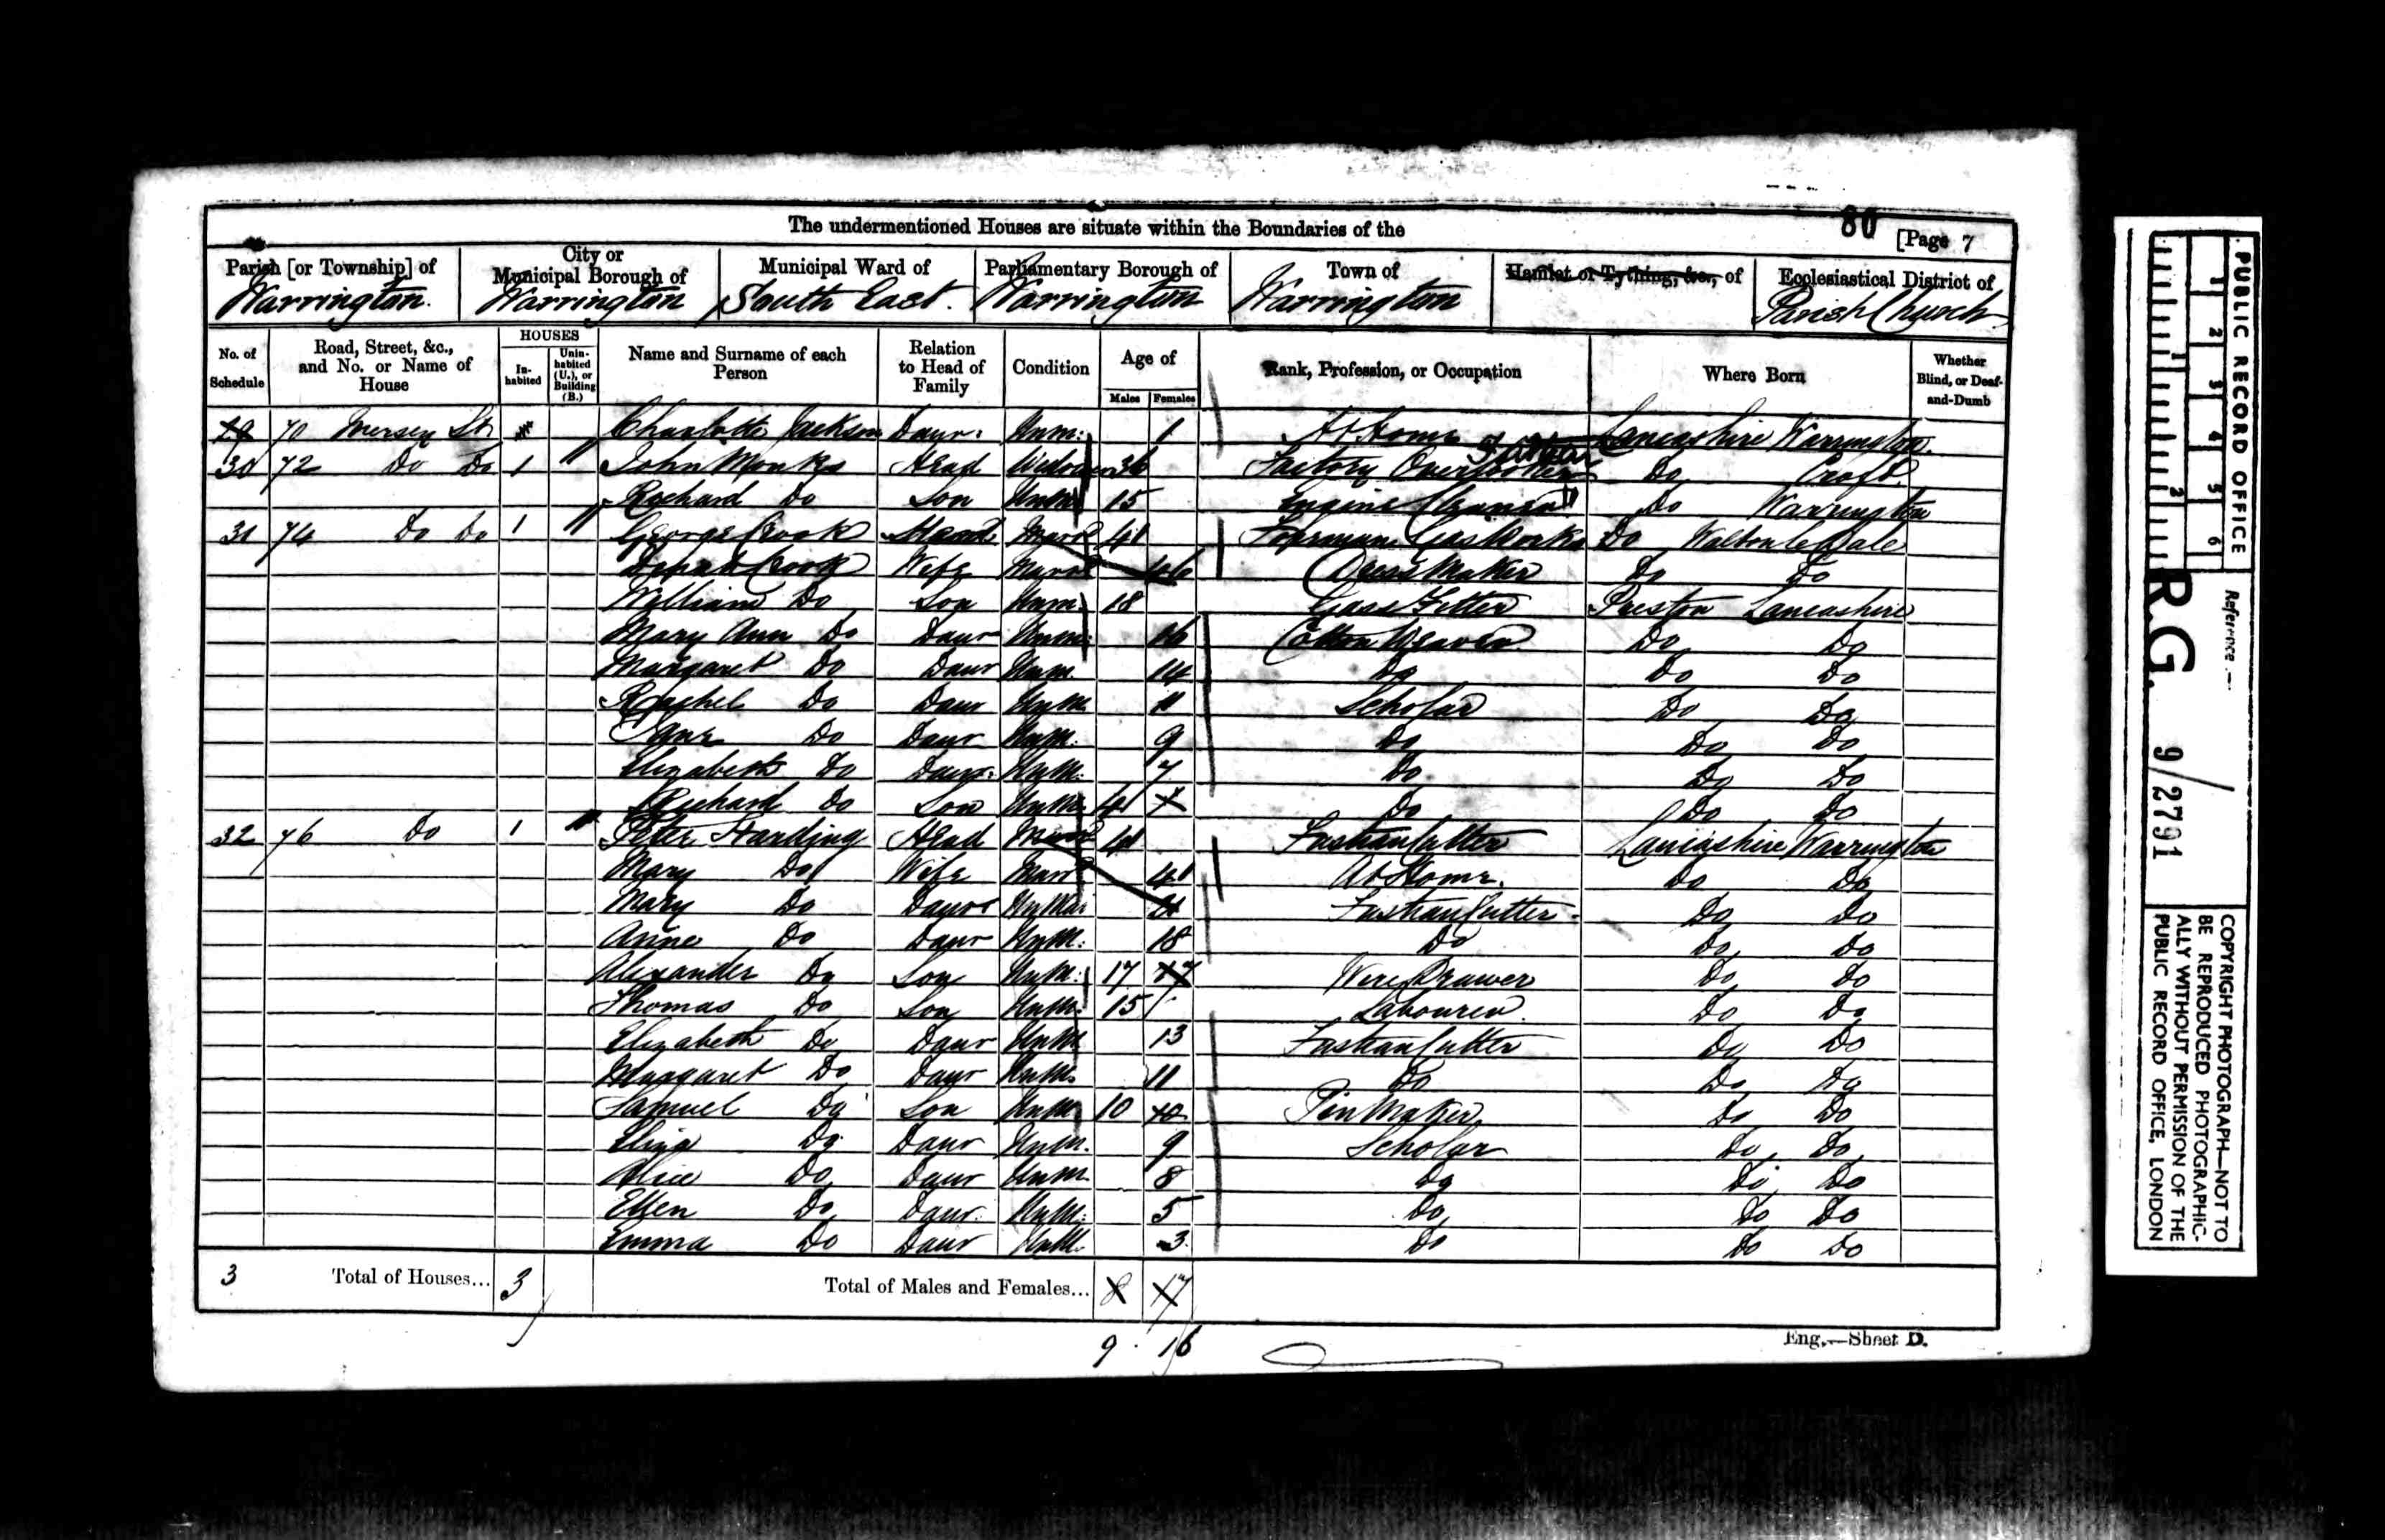 The undermentioned Houses are situate within the Boundaries of the
80 [Page 7
Parish [or Township] of Warrington.
City or Municipal Borough of Warrington
Municipal Ward of South East.
Parliamentary Borough of Warrington
Town of Warrington
Hamlet or Tything, &c., of
Ecclesiastical District of Parish Church
No. of Schedule
Road, Street, &c., and No. or Name of House
HOUSES
Inhabited
Uninhabited (U.), or Building (B.)
Name and Surname of each Person
Relation to Head of Family
Condition
Age of
Males Females
Rank, Profession, or Occupation
Where Born
Whether Blind, or Deaf-and-Dumb
29 70 Mersey St Charlotte Jackson Daur. Unm. 1 At Home Lancashire Warrington.
30 72 Do Do 1 John Monks Head Widower 36 Factory Overlooker Do Croft.
Richard Do Son Unm 15 Engine Cleaner Do Warrington
31 74 Do Do 1 George Crook Head Marrd 41 Foreman Gas Works Do Walton le Dale
Crook Wife Marrd 46 Dress Maker Do Do
William Do Son Unm. 18 Gass Fitter Preston Lancashire
Mary Ann Do Daur Unm. 16 Cotton Weaver Do Do
Margaret Do Daur Unm. 14 Do Do Do
Rachel Do Daur Unm. 11 Scholar Do Do
Jane Do Daur Unm. 9 Do Do Do
Elizabeth Do Daur. Unm. 7 Do Do Do
Richard Do Son Unm. Do Do Do
32 76 Do 1 Peter Harding Head Marrd 41 Fustian Cutter Lancashire Warrington
Mary Do Wife Marrd 41 At Home. Do Do
Mary Do Daur Unm. Fustian Cutter. Do Do
Anne Do Daur Unm. 18 Do Do Do
Alexander Do Son Unm. 17 17 Wire Drawer Do Do
Thomas Do Son Unm. 15 Labourer. Do Do
Elizabeth Do Daur Unm 13 Fustian Cutter Do Do
Margaret Do Daur Unm. 11 Do Do Do
Samuel Do Son Unm 10 10 Pin Maker. Do Do
Eliza Do Daur Unm. 9 Scholar Do Do
Alice Do Daur Unm 8 Do Do Do
Ellen Do Daur. Unm. 5 Do Do Do
Emma Do Daur Unm. 3 Do Do Do
3 Total of Houses... 3 Total of Males and Females... 8 17
9 . 16
Eng.—Sheet D.
PUBLIC RECORD OFFICE
1 2 3 4 5 6
1 2
Reference:—
R.G. 9/2791
COPYRIGHT PHOTOGRAPH—NOT TO
BE REPRODUCED PHOTOGRAPHIC-
ALLY WITHOUT PERMISSION OF THE
PUBLIC RECORD OFFICE, LONDON